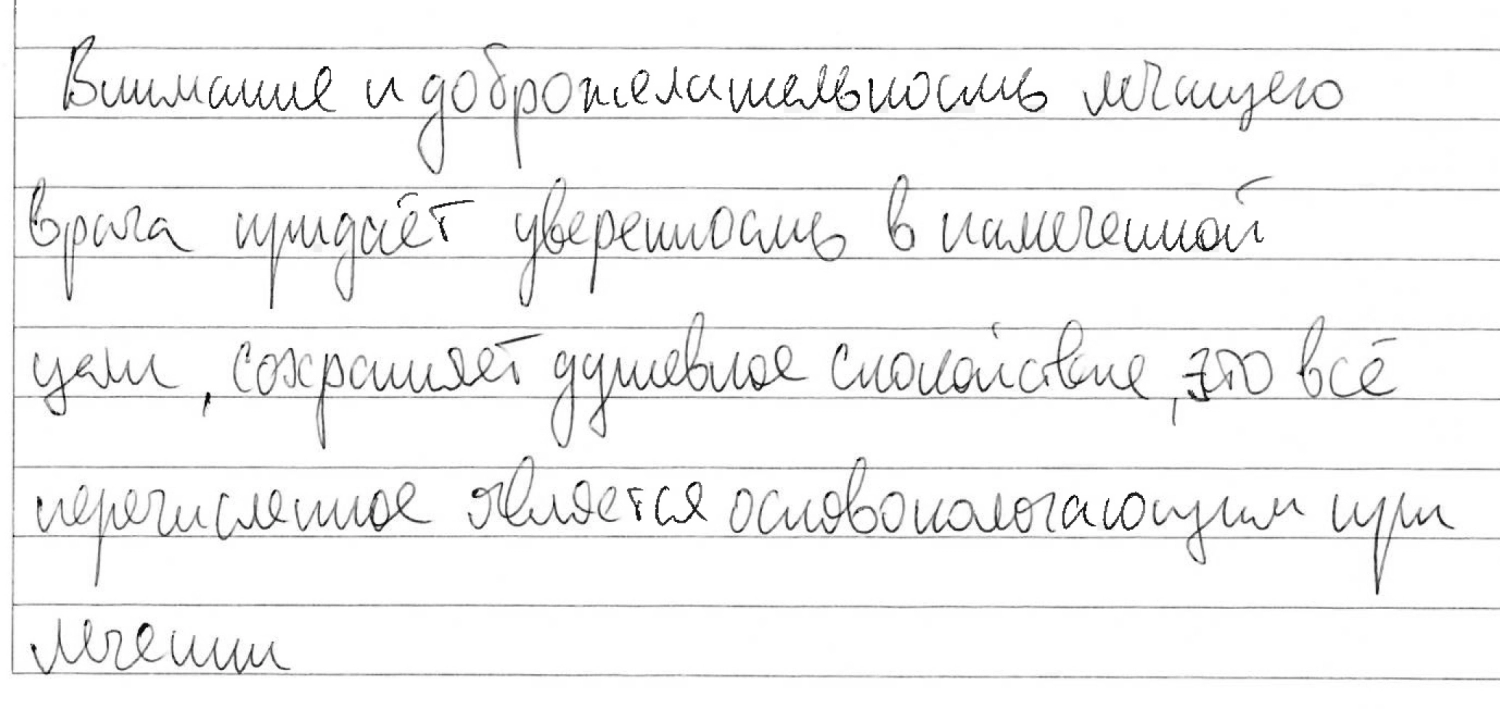 Внимание и доброжелательность лечащего
врача придаёт уверенность в намеченной
цели, сохраняет душевное спокойствие, это всё
перечисленное является основополагающим при
лечении